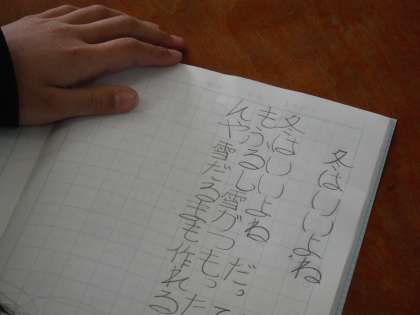 冬はいいよね
冬はいいよね だって
もふるし雪がつもった
んや雪だるまも作れる